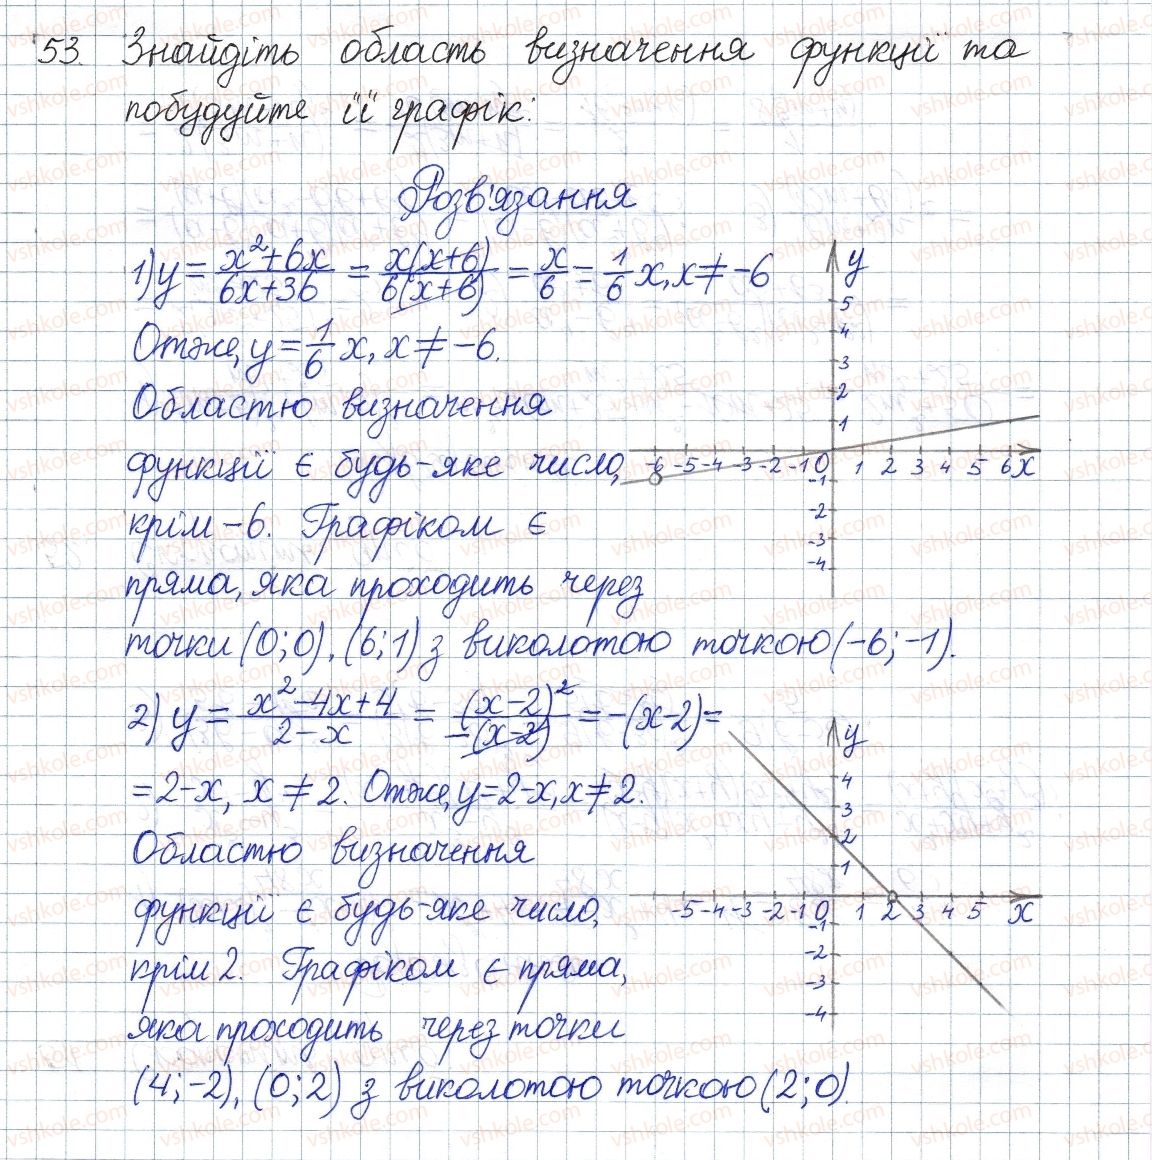 53. Знайдіть область визначення функції та
побудуйте її графік:
Розв'язання
1) y = (x²+6x)/(6x+36) = (x(x+6))/(6(x+6)) = x/6 = 1/6 x, x ≠ -6
Отже, y = 1/6 x, x ≠ -6.
Областю визначення
функції є будь-яке число,
крім -6. Графіком є
пряма, яка проходить через
точки (0;0), (6;1) з виколотою точкою (-6;-1).
y
5
4
3
2
1
-6 -5 -4 -3 -2 -1 0 1 2 3 4 5 6 x
-1
-2
-3
-4
2) y = (x²-4x+4)/(2-x) = (x-2)²/(-(x-2)) = -(x-2) =
= 2-x, x ≠ 2. Отже, y = 2-x, x ≠ 2.
Областю визначення
функції є будь-яке число,
крім 2. Графіком є пряма,
яка проходить через точки
(4;-2), (0;2) з виколотою точкою (2;0).
y
4
3
2
1
-5 -4 -3 -2 -1 0 1 2 3 4 5 x
-1
-2
-3
-4
vshkole.com